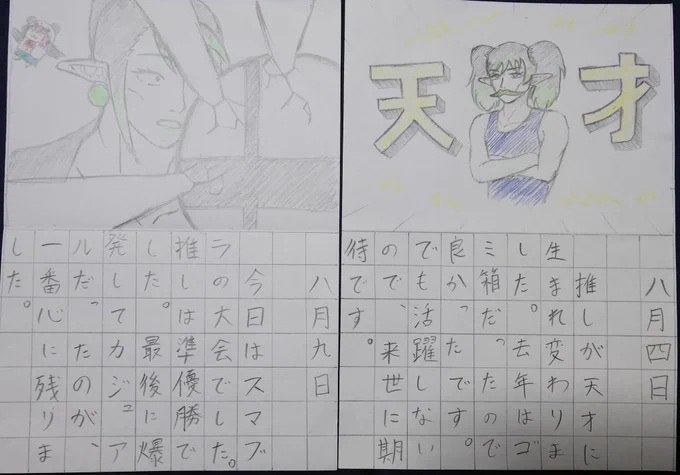 天才
八月四日
推しが天才に
生まれ変わりま
した。去年はゴ
ミ箱だったので
良かったです。
でも活躍しない
ので、来世に期
待です。
八月九日
今日はスマブ
ラの大会でした。
推しは準優勝で
した。最後に爆
発してカジュア
ルだったのが、
一番心に残りま
した。